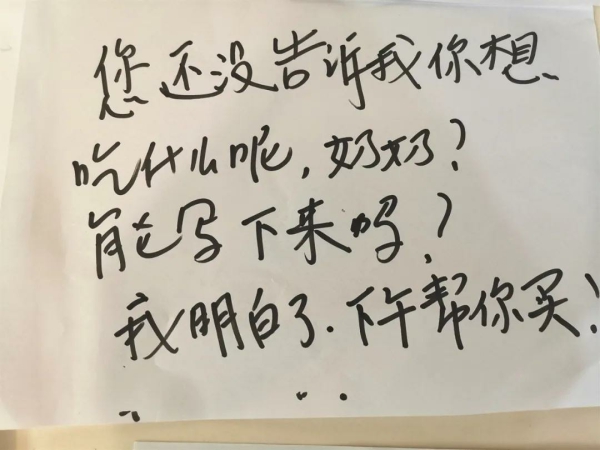 您还没告诉我你想
吃什么呢，奶奶？
能写下来吗？
我明白了.下午帮你买！